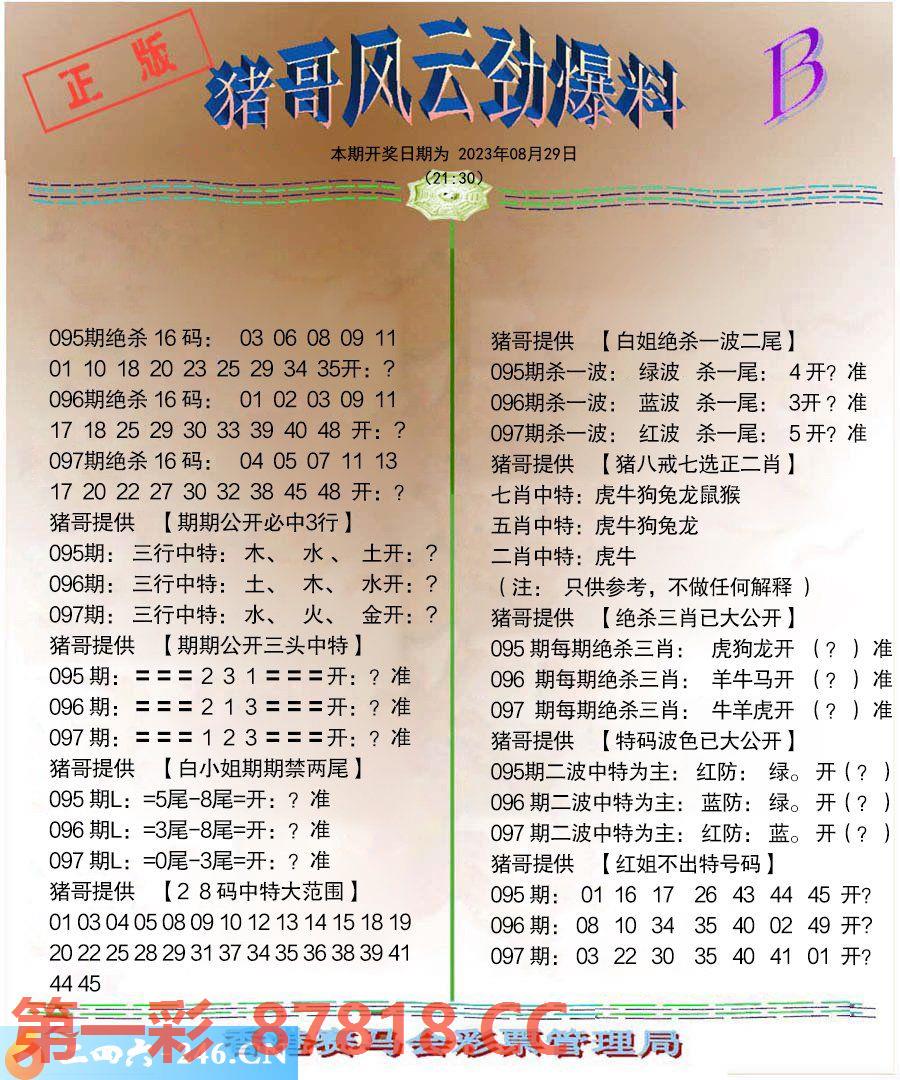 正版
猪哥风云劲爆料
B
本期开奖日期为 2023年08月29日
(21:30)
095期绝杀 16 码： 03 06 08 09 11
01 10 18 20 23 25 29 34 35开：?
096期绝杀 16 码： 01 02 03 09 11
17 18 25 29 30 33 39 40 48 开：?
097期绝杀 16 码： 04 05 07 11 13
17 20 22 27 30 32 38 45 48 开：?
猪哥提供 【期期公开必中3行】
095期： 三行中特： 木、 水 、 土开：?
096期： 三行中特： 土、 木、 水开：?
097期： 三行中特： 水、 火、 金开：?
猪哥提供 【期期公开三头中特】
095 期：＝＝＝2 3 1＝＝＝开：? 准
096 期：＝＝＝2 1 3＝＝＝开：? 准
097 期：＝＝＝1 2 3＝＝＝开：? 准
猪哥提供 【白小姐期期禁两尾】
095 期L：=5尾-8尾=开：? 准
096 期L：=3尾-8尾=开：? 准
097 期L：=0尾-3尾=开：? 准
猪哥提供 【2 8 码中特大范围】
01 03 04 05 08 09 10 12 13 14 15 18 19
20 22 25 28 29 31 37 34 35 36 38 39 41
44 45
猪哥提供 【白姐绝杀一波二尾】
095期杀一波： 绿波 杀一尾： 4 开? 准
096期杀一波： 蓝波 杀一尾： 3开 ? 准
097期杀一波： 红波 杀一尾： 5 开? 准
猪哥提供 【猪八戒七选正二肖】
七肖中特：虎牛狗兔龙鼠猴
五肖中特：虎牛狗兔龙
二肖中特：虎牛
（注： 只供参考，不做任何解释 ）
猪哥提供 【绝杀三肖已大公开】
095 期每期绝杀三肖： 虎狗龙开 （? ）准
096 期每期绝杀三肖： 羊牛马开 （? ）准
097 期每期绝杀三肖： 牛羊虎开 （? ）准
猪哥提供 【特码波色已大公开】
095期二波中特为主： 红防： 绿。 开（? ）
096 期二波中特为主： 蓝防： 绿。 开（? ）
097 期二波中特为主： 红防： 蓝。 开（? ）
猪哥提供 【红姐不出特号码】
095 期： 01 16 17 26 43 44 45 开?
096 期： 08 10 34 35 40 02 49 开?
097 期： 03 22 30 35 40 41 01 开?
第一彩 87818.CC
二四六 246.CN
香港赛马会彩票管理局